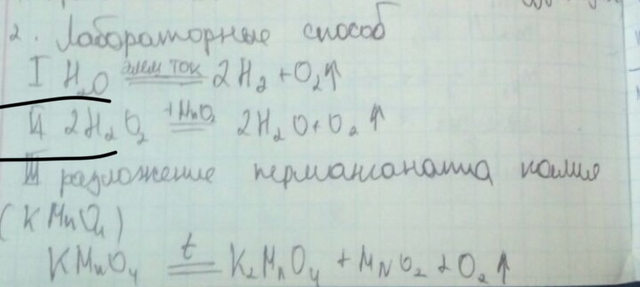 2. Лабораторные способ
I H₂O элем ток = 2H₂ + O₂↑
II 2H₂O₂ +MnO₂ = 2H₂O + O₂↑
III разложение перманганата калия
(KMnO₄)
KMnO₄ t = K₂MnO₄ + MnO₂ + O₂↑